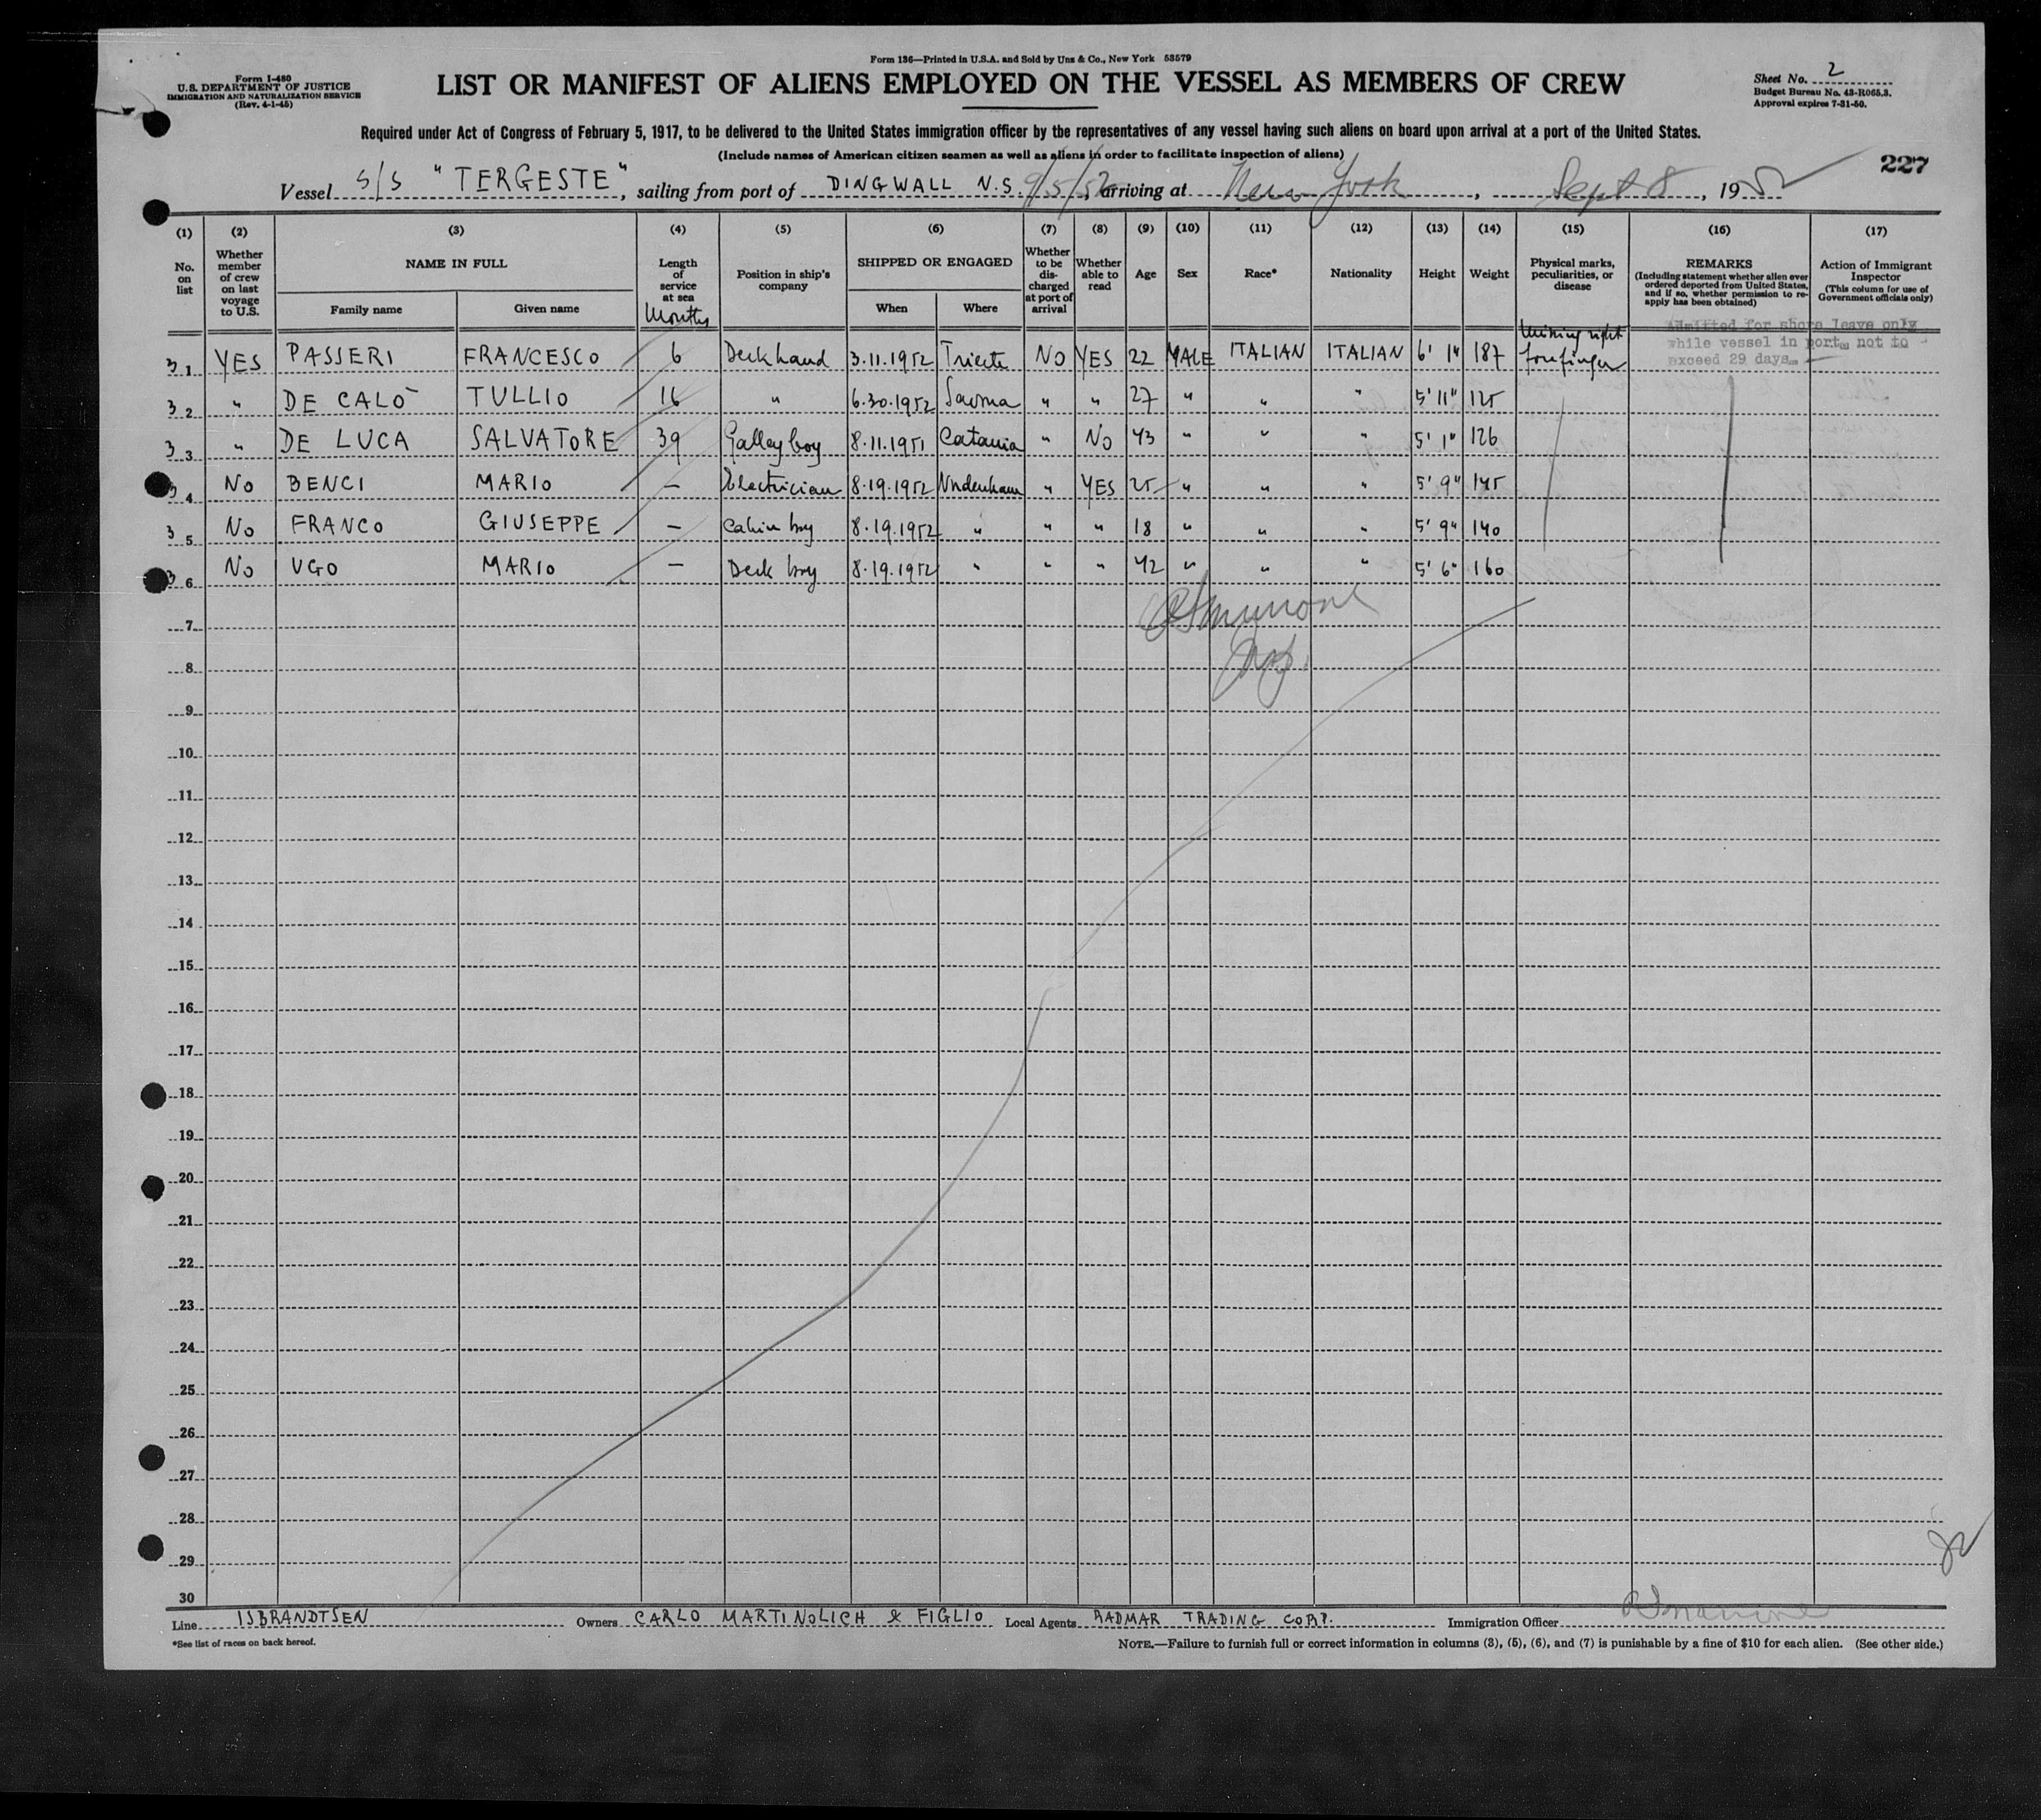 Form 136—Printed in U.S.A. and Sold by Unz & Co., New York 53579
Form I-480
U.S. DEPARTMENT OF JUSTICE
IMMIGRATION AND NATURALIZATION SERVICE
(Rev. 4-1-45)
LIST OR MANIFEST OF ALIENS EMPLOYED ON THE VESSEL AS MEMBERS OF CREW
Sheet No. 2
Budget Bureau No. 43-R065.3.
Approval expires 7-31-50.
Required under Act of Congress of February 5, 1917, to be delivered to the United States immigration officer by the representatives of any vessel having such aliens on board upon arrival at a port of the United States.
(Include names of American citizen seamen as well as aliens in order to facilitate inspection of aliens)
227
Vessel S/S "TERGESTE", sailing from port of DINGWALL N.S. 9/5/52, arriving at New York, Sept 8, 1952
(1) (2) (3) (4) (5) (6) (7) (8) (9) (10) (11) (12) (13) (14) (15) (16) (17)
No. on list
Whether member of crew on last voyage to U.S.
NAME IN FULL
Family name Given name
Length of service at sea
Months
Position in ship's company
SHIPPED OR ENGAGED
When Where
Whether to be discharged at port of arrival
Whether able to read
Age
Sex
Race*
Nationality
Height
Weight
Physical marks, peculiarities, or disease
REMARKS
(Including statement whether alien ever ordered deported from United States, and if so, whether permission to reapply has been obtained)
Action of Immigrant Inspector
(This column for use of Government officials only)
Admitted for shore leave only
while vessel in port, not to
exceed 29 days.
1 YES PASSERI FRANCESCO 6 Deck hand 3.11.1952 Trieste NO YES 22 MALE ITALIAN ITALIAN 6' 1" 187 Missing right forefinger
2 " DE CALO TULLIO 16 " 6.30.1952 Savona " " 27 " " " 5' 11" 125
3 " DE LUCA SALVATORE 39 Galley boy 8.11.1951 Catania " NO 43 " " " 5' 1" 126
4 NO BENCI MARIO — Electrician 8.19.1952 " YES 25 " " " 5' 9" 145
5 NO FRANCO GIUSEPPE — Cabin boy 8.19.1952 " " " 18 " " " 5' 9" 140
6 NO UGO MARIO — Deck boy 8.19.1952 " " " 42 " " " 5' 6" 160
7
8
9
10
11
12
13
14
15
16
17
18
19
20
21
22
23
24
25
26
27
28
29
30
Line ISBRANDTSEN Owners CARLO MARTINOLICH & FIGLIO Local Agents RADMAR TRADING CORP. Immigration Officer
*See list of races on back hereof.
NOTE.—Failure to furnish full or correct information in columns (3), (5), (6), and (7) is punishable by a fine of $10 for each alien. (See other side.)